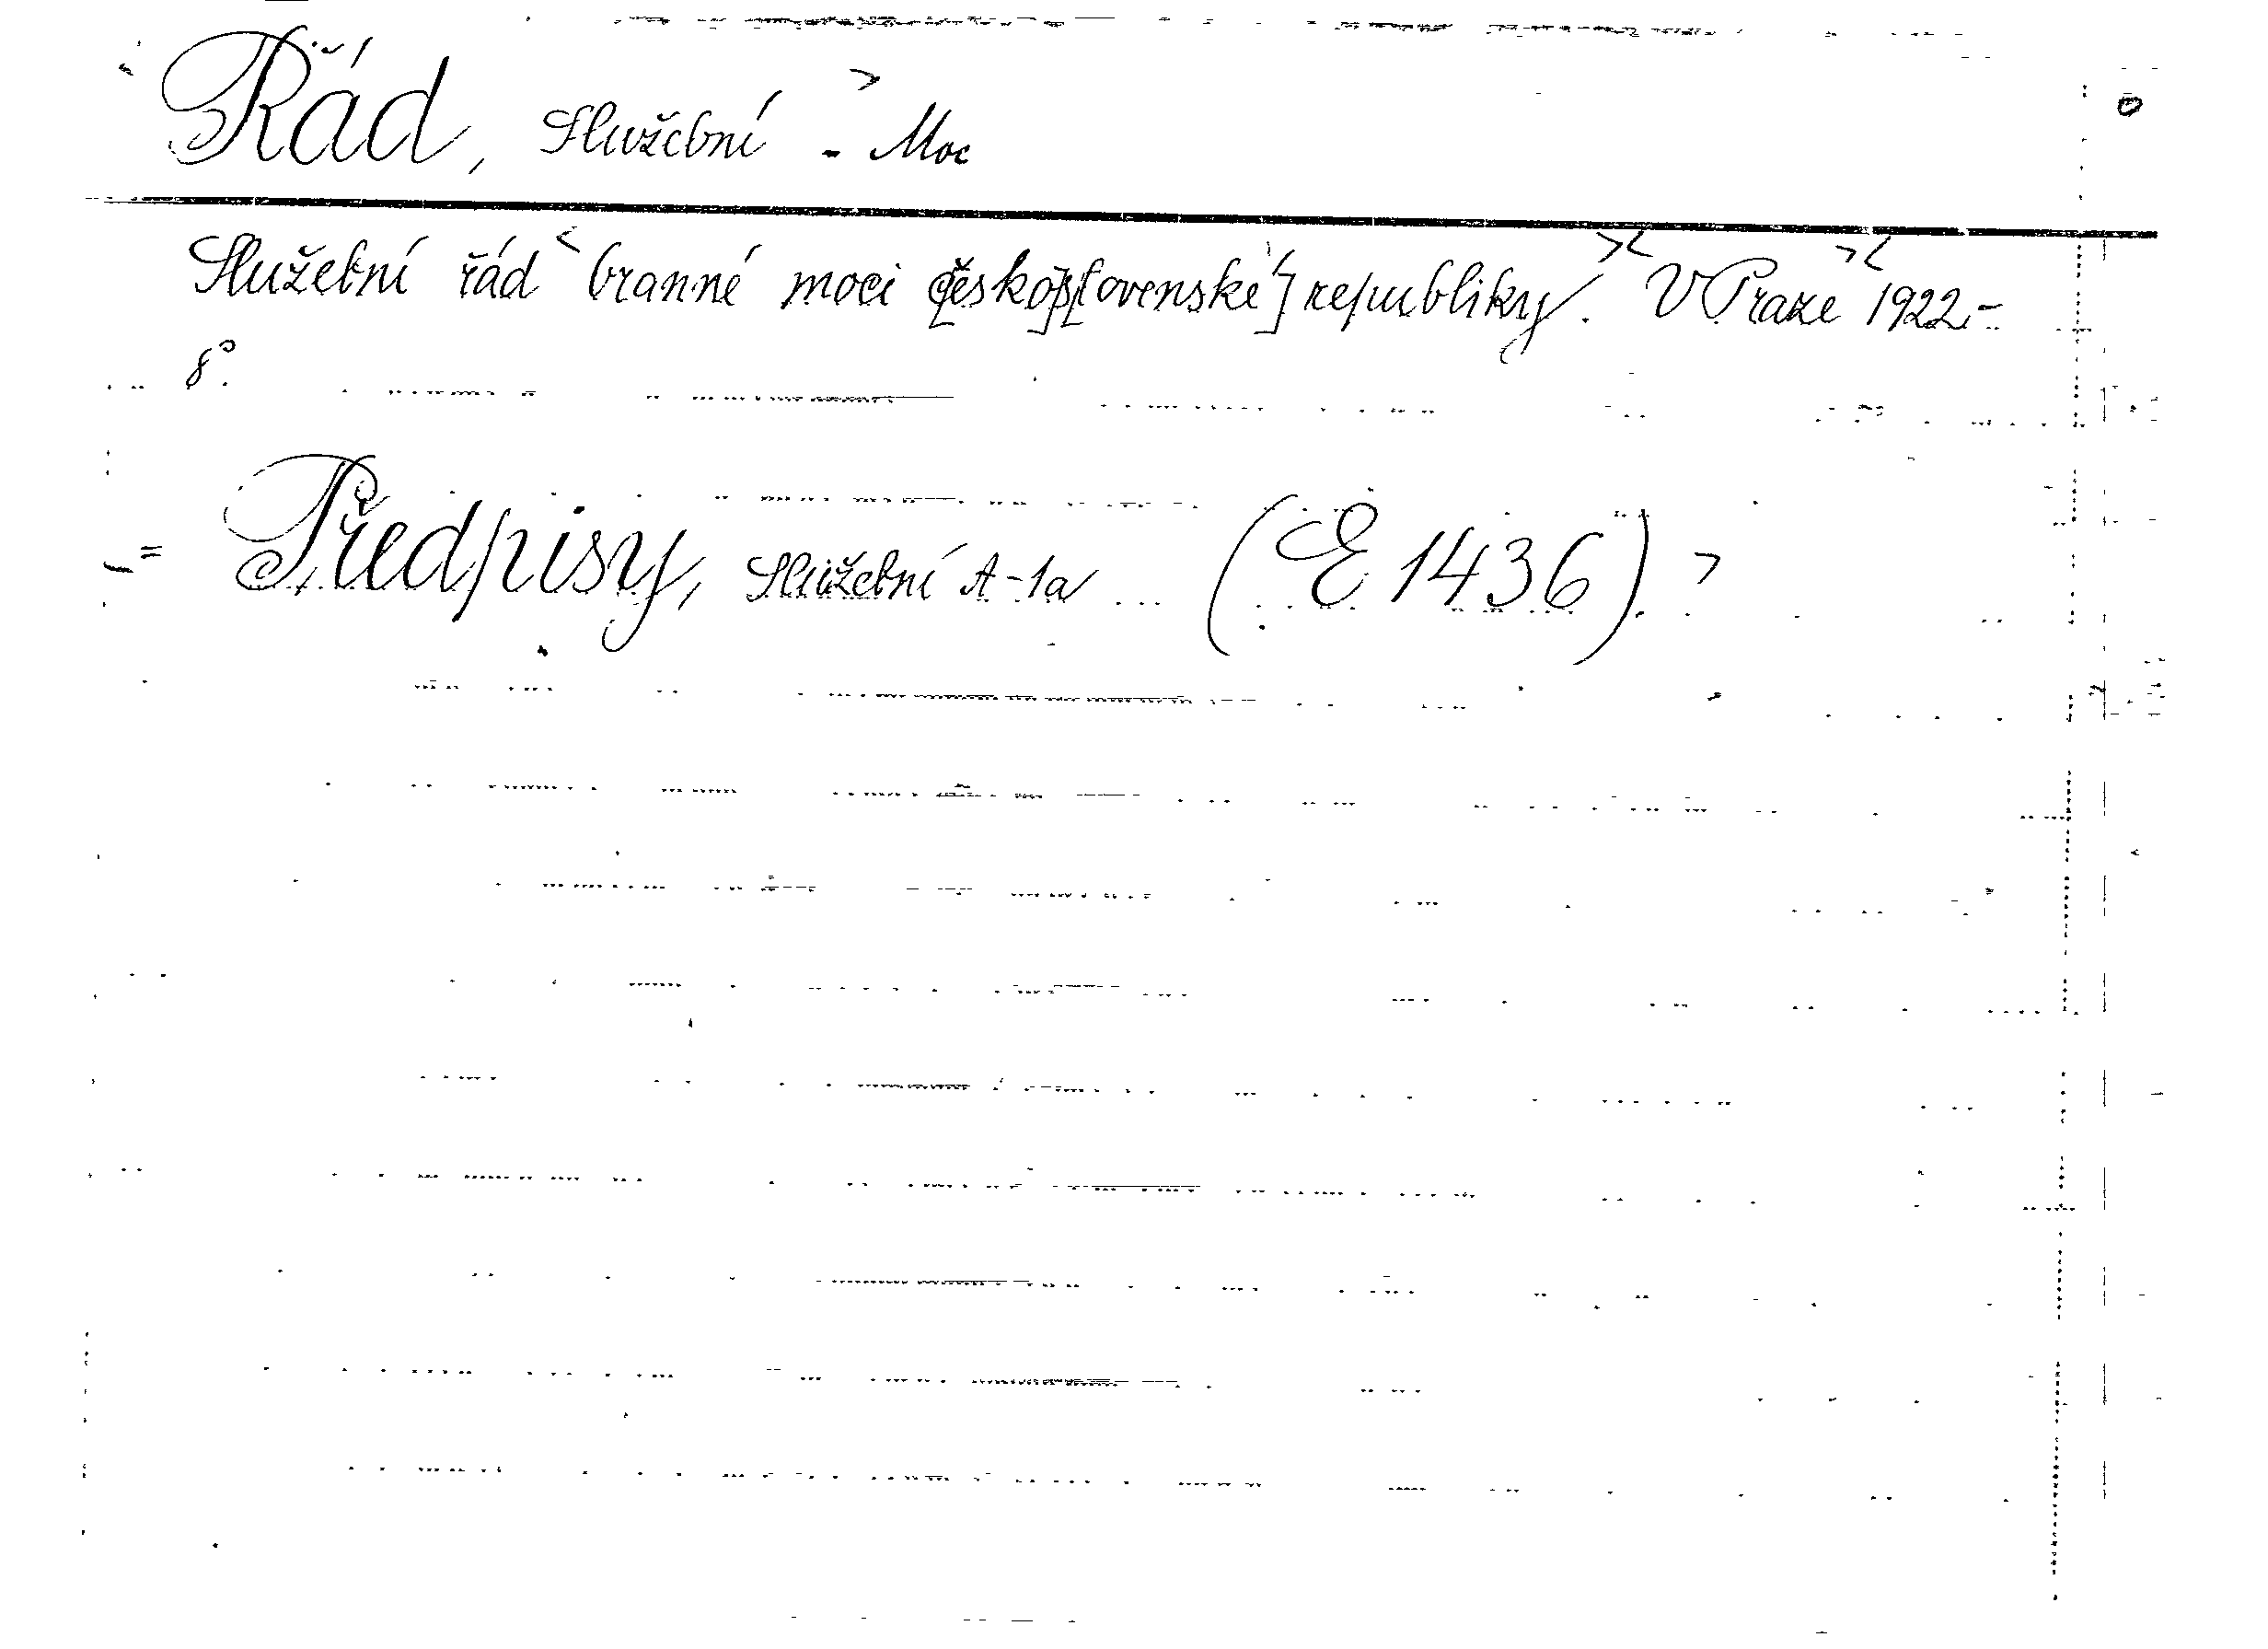 Řád, Služební - Moc
Služební řád branné moci česko[slovenské] republiky. V Praze 1922.-
8°.
= Předpisy, Služební A-1a ... (E 1436).